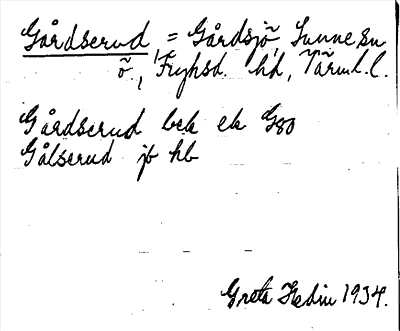 Gårdserud, = Gårdsjö, Sunne sn
ö., Fryksd. hd, Värml. l.
Gårdserud bek ek G80
Gålserud jb hb
Greta Hedin 1934.